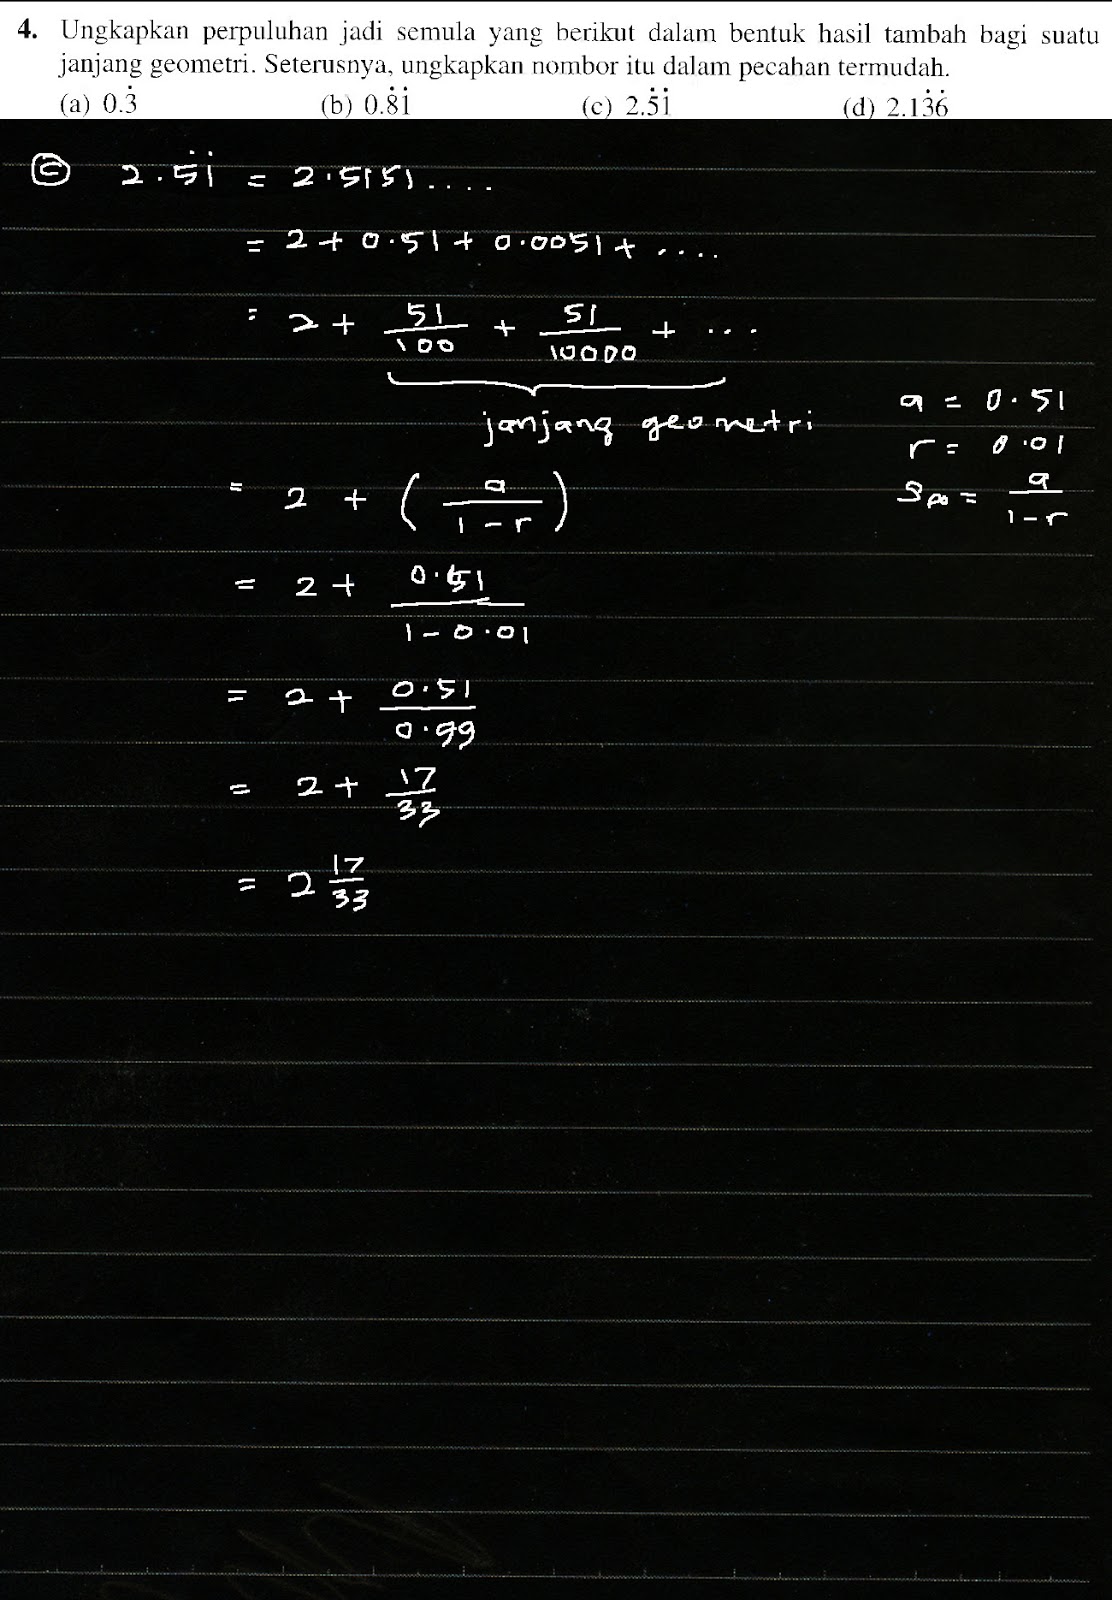 4. Ungkapkan perpuluhan jadi semula yang berikut dalam bentuk hasil tambah bagi suatu
janjang geometri. Seterusnya, ungkapkan nombor itu dalam pecahan termudah.
(a) 0.3̇ (b) 0.8̇1̇ (c) 2.5̇1̇ (d) 2.13̇6̇
ⓒ 2.5̇1̇ = 2.5151....
= 2 + 0.51 + 0.0051 + ....
= 2 + 51/100 + 51/10000 + ...
janjang geometri
a = 0.51
r = 0.01
S∞ = a/(1-r)
= 2 + (a/(1-r))
= 2 + 0.51/(1-0.01)
= 2 + 0.51/0.99
= 2 + 17/33
= 2 17/33